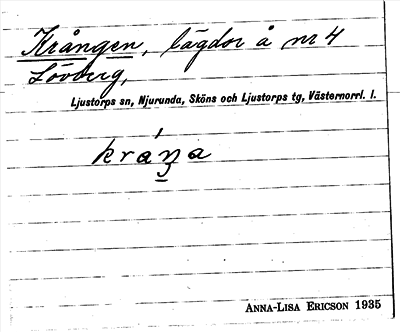 Krången, lägdor å nr 4
Lövberg,
Ljustorps sn, Njurunda, Sköns och Ljustorps tg, Västernorrl. l.
kráŋa
ANNA-LISA ERICSON 1935